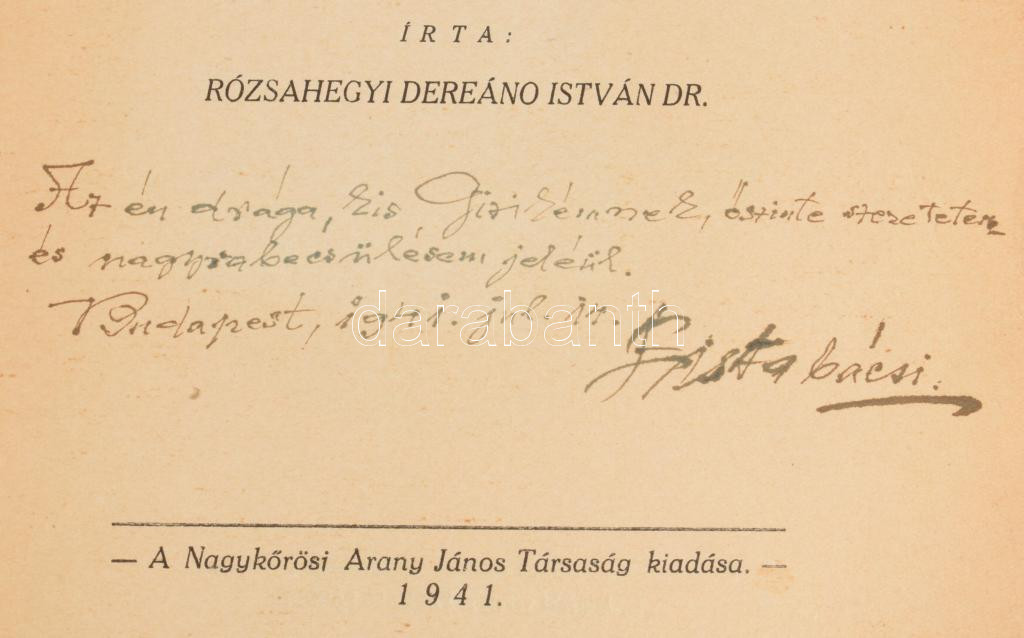 ÍRTA:
RÓZSAHEGYI DEREÁNO ISTVÁN DR.
Az én drága, kis Gizikémnek, őszinte szeretetem
és nagyrabecsülésem jeléül.
Budapest, 1941. júl.
Pista bácsi.
darabanth
— A Nagykőrösi Arany János Társaság kiadása. —
1941.